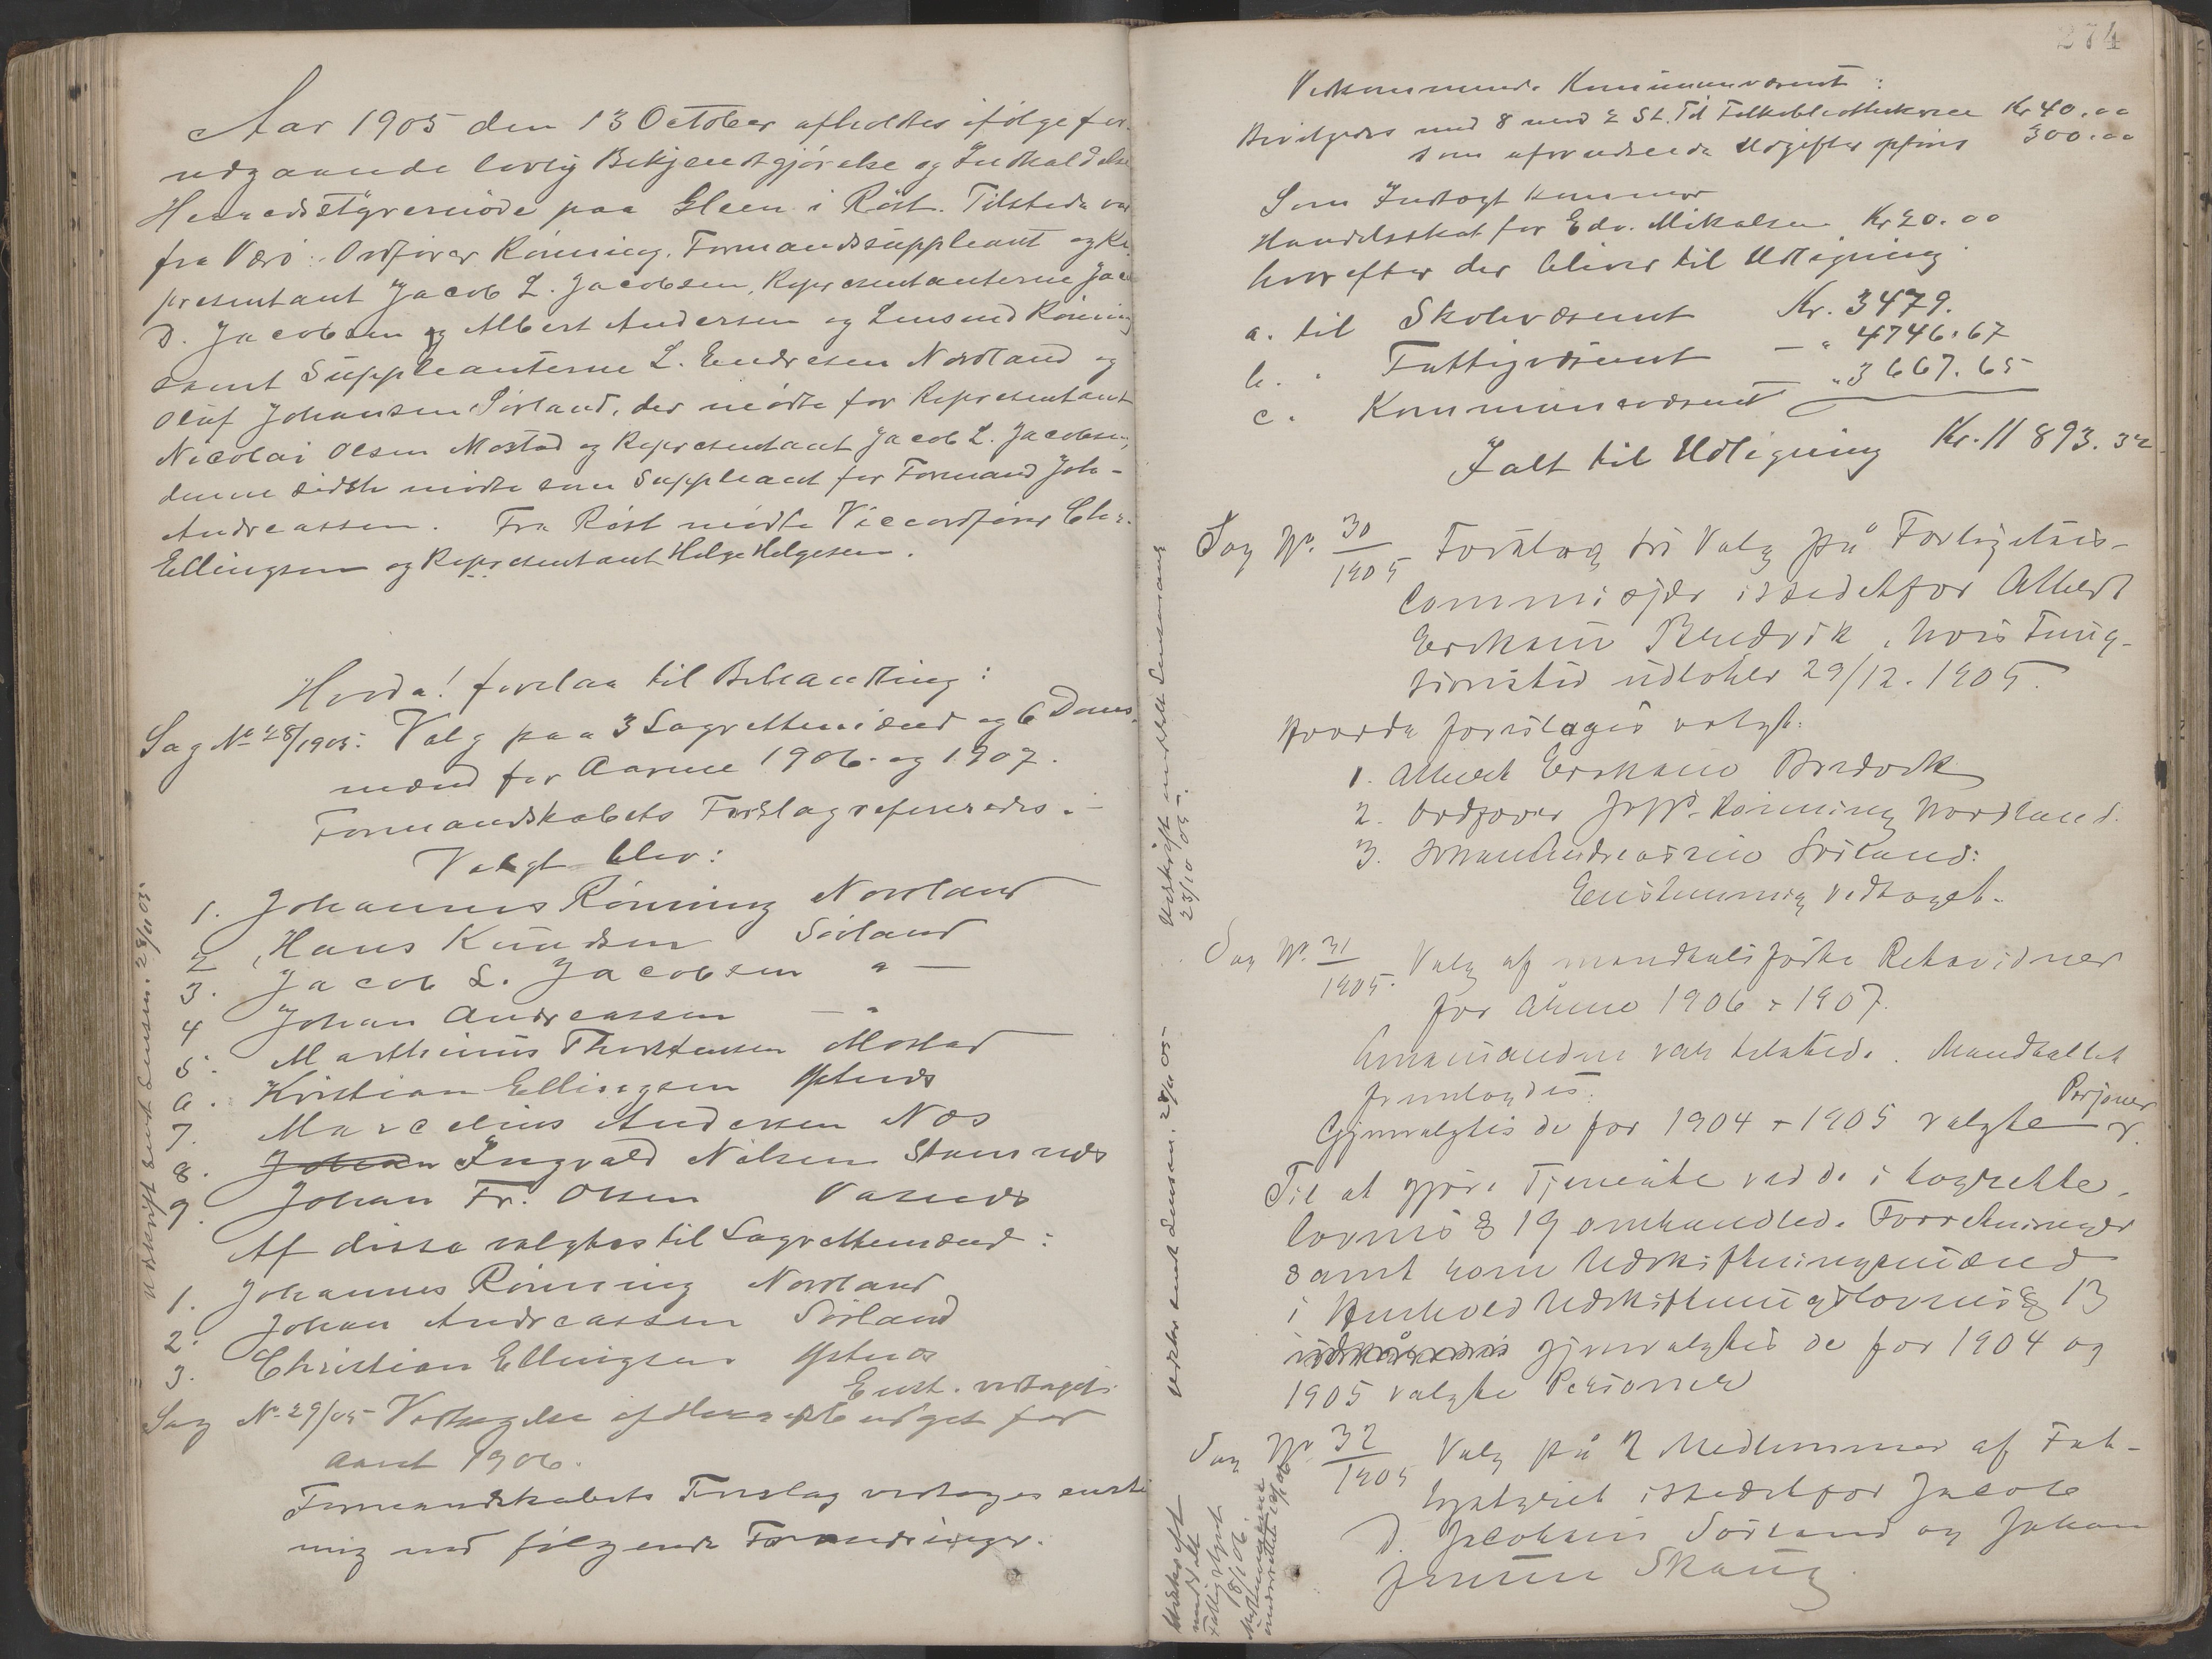 Aar 1905 den 13 October afholdtes ifølge for-
udgaaende lovlig Bekjendtgjörelse og Indkaldelse
Herredsstyremöde paa Gleen i Röst. Tilstede var
fra Værö: Ordförer Rönning, Formandssuppleant og Re-
presentant Jacob L. Jacobsen, Representanterne Jacob
D. Jacobsen og Albert Andersen og Lensmd Rönning
samt Suppleanterne L. Endresen Nordland og
Oluf Johansen Sörland, der mödte for Representant
Nicolai Olsen Mostad og Representant Jacob L. Jacobsen,
denne sidste mödte som Suppleant for Formand Joh-
Andreassen. Fra Röst mödte Viceordförer Chr.
Ellingsen og Representant Helge Helgesen.
Hvorda! forelaa til Behandling:
Sag No 28/1905. Valg paa 3 Lagrettemænd og 6 Doms-
mænd for Aarene 1906 og 1907.
Formandskabets Forslag refereredes.-
Valgt blev:
1. Johannes Rönning Nordland
2. Hans Knudsen Sörland
3. Jacob L. Jacobsen " —
4 Johan Andreassen — "
5. Marthinus Thorstensen Mostad
6. Kristian Ellingsen Ystnes
7. Marcelius Andersen Nes
8. Johan Ingvald Nilsen Stamnes
9. Johan Fr. Olsen Vasnes
Af disse valgtes til Lagrettemænd:
1. Johannes Rönning Nordland
2. Johan Andreassen Sörland
3. Christian Ellingsen Ystnes
Enst. vedtaget.
Sag No 29/05 Vedtagelse af Herredsbudget for
Aaret 1906.
Formandskabets Forslag vedtoges enstem-
mig med följende Forandringer.
Udskrift sendt Sensen. 28/11 05.
274
Vedkommende Kommunevæsenet:
Bevilgedes med 8 mod 2 St. Til Folkebibliothekerne Kr 40.00
som uforudseede Udgifter opföres 300.00
Som Indtægt kommer
Handelsskat for Edv. Mikalsen Kr 20.00
hvorefter der bliver til Udligning
a. til Skolevæsenet Kr. 3479.
b. " Fattigvæsenet — " 4746.67
c. Kommunevæsenet " 3667.65
Ialt til Udligning Kr. 11 893.32
Sag No. 30/1905 Forslag til Valg på Forligelses-
Commisær istedetfor Albert
Eriksen Bredvik, hvis Fung-
sionstid udlöber 29/12. 1905.
Hvorda foreslages valgt:
1. Albert Eriksen Bredvik
2. Ordförer Joh. P. Rönning Nordland.
3. Johan Andreassen Sörland:
Enstemmig vedtaget.
Sag No. 31/1905. Valg af mandtalsförte Retsvidner
for Årene 1906 & 1907.
Lensmanden var tilstede. Mandtallet
fremlagdes.
Gjenvalgtes de for 1904 & 1905 valgte Personer
Til at gjöre Tjeneste ved de i Lagrette-
lovens § 19 omhandlede Forretninger
samt som Udskiftningsmænd
i Henhold Udskiftningslovens § 13
gjenvalgtes de for 1904 og
1905 valgte Personer
Sag No. 32/1905 Valg på 2 Medlemmer af Fat-
tigstyret istedetfor Jacob
D. Jacobsen Sörland og Johan
Jensen Skaug
Udskrift meddelt Lensmand
23/10 05.
Udskr. sendt Sensen. 28/11 05
Udskr. af
meddelt
Fattigstyret
18/1 06.
Medlemmerne
underrettet 18/1 06